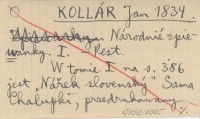 KOLLÁR Jan 1834.
Národnié zpie-
wanky. I. Pest.
W tomie I na s. 386
jest „Nářek slovenský" Sama
Chalupki, przedrukowany